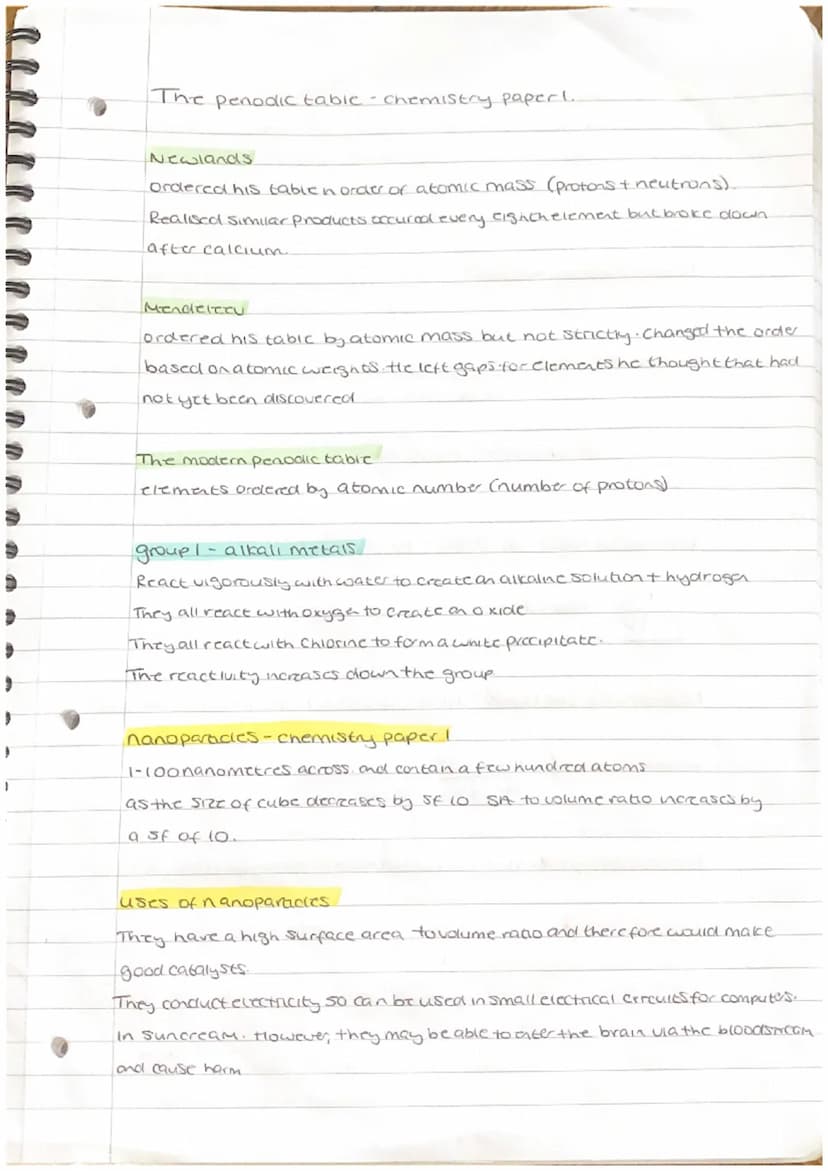 The periodic table - chemistry paper 1.
Newlands
ordered his table in order of atomic mass (protons + neutrons).
Realised similar products occured every eighth element but broke down
after calcium.
Mendeleev
ordered his table by atomic mass but not strictly. Changed the order
based on atomic weights. He left gaps for elements he thought that had
not yet been discovered
The modern periodic table
elements ordered by atomic number (number of protons)
group 1 - alkali metals
React vigorously with water to create an alkaline solution + hydrogen
They all react with oxygen to create an oxide
They all react with Chlorine to form a white precipitate.
The reactivity increases down the group
nanoparticles - chemistry paper 1
1-100 nanometres across and contain a few hundred atoms
as the size of cube decreases by SF 10 SA to volume ratio increases by
a SF of 10.
uses of nanoparticles
They have a high surface area to volume ratio and therefore would make
good catalysts.
They conduct electricity so can be used in small electrical circuits for computers.
In suncream. However, they may be able to enter the brain via the bloodstream
and cause harm